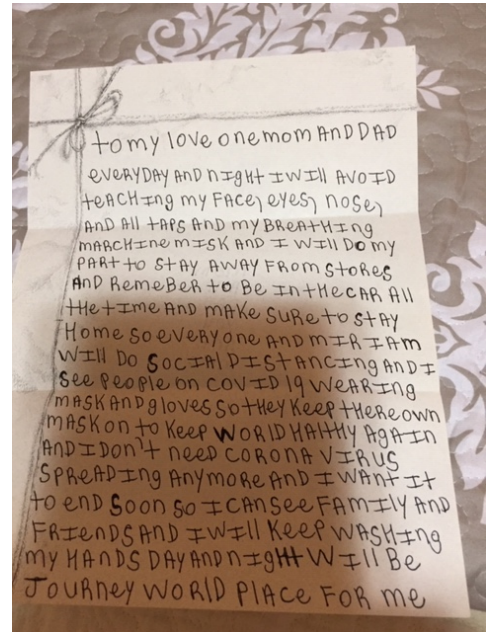 to my love one mom AND DAD
eveRyDAY AND night I will AVOID
teACHing my FAce, eyes, nose,
AND All tAPs AND my BReAtHing
mARCHine mISK AND I will Do my
PARt to StAY AWAY FRom StoRes
AnD RemeBeR to Be In tHe CAR All
tHe tIme AND mAKe SuRe to StAY
Home So eveRyone AND mIRIAm
Will DO SOCIAl DIStAnCing AnD I
See PeoPle on COVID 19 WeARing
mASK AND gloves So tHey KeeP tHeRe own
mASK on to KeeP WORlD HAltHy AgAIn
AnD I Don't neeD CORonA VIRUS
SPReADIng AnymoRe AnD I wAnt It
to enD Soon So I CAn See FAmIly AnD
FRIenDS AnD I WIll KeeP WASHIng
my HAnDS DAY AnD nIgHt WIll Be
JouRney WORlD PlACe FOR me